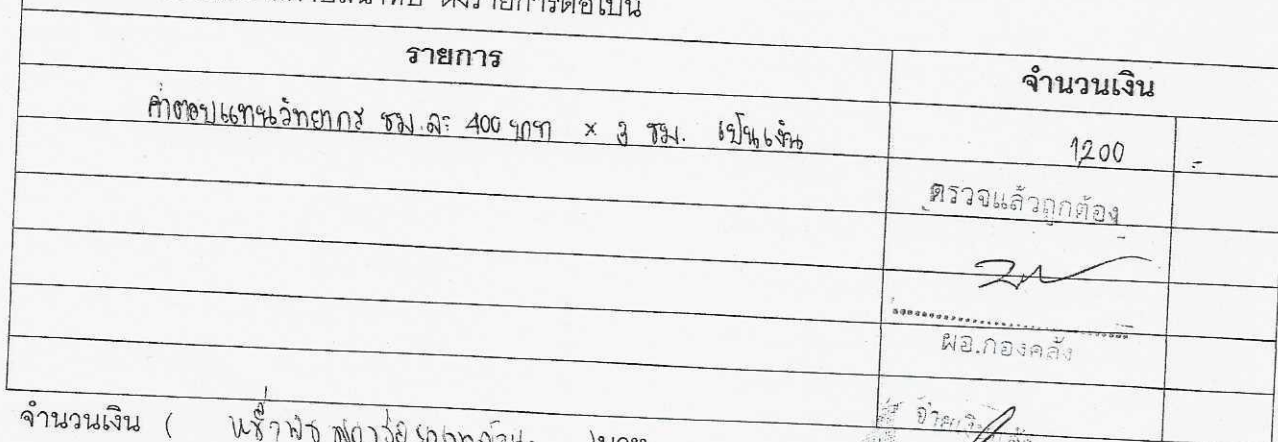 ดังรายการต่อไปนี้
รายการ จำนวนเงิน
ค่าตอบแทนวิทยากร ชม.ละ 400 บาท x 3 ชม. เป็นเงิน 1200 -
ตรวจแล้วถูกต้อง
ผอ.กองคลัง
จำนวนเงิน ( หนึ่งพันสองร้อยบาทถ้วน ) บาท